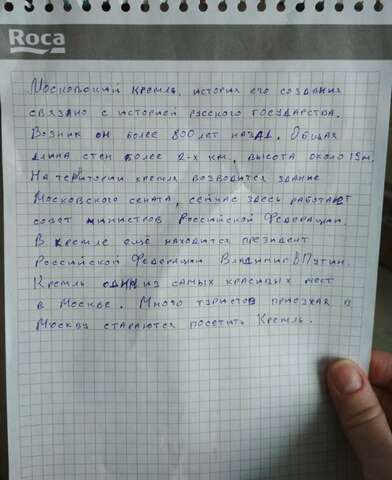 Roca
Московский кремль, история его создания
связано с историей русского государства.
Возник он более 800 лет назад. Общая
длина стен более 2-х км., высота около 19м.
На територии кремля возводится здание
Московского сената, сейчас здесь работает
совет министров Российской Федерации.
В кремле ещё находится президент
Российской Федерации Владимир В Путин.
Кремль один из самых красивых мест
в Москве. Много туристов приезжая в
Москву стараются посетить Кремль.